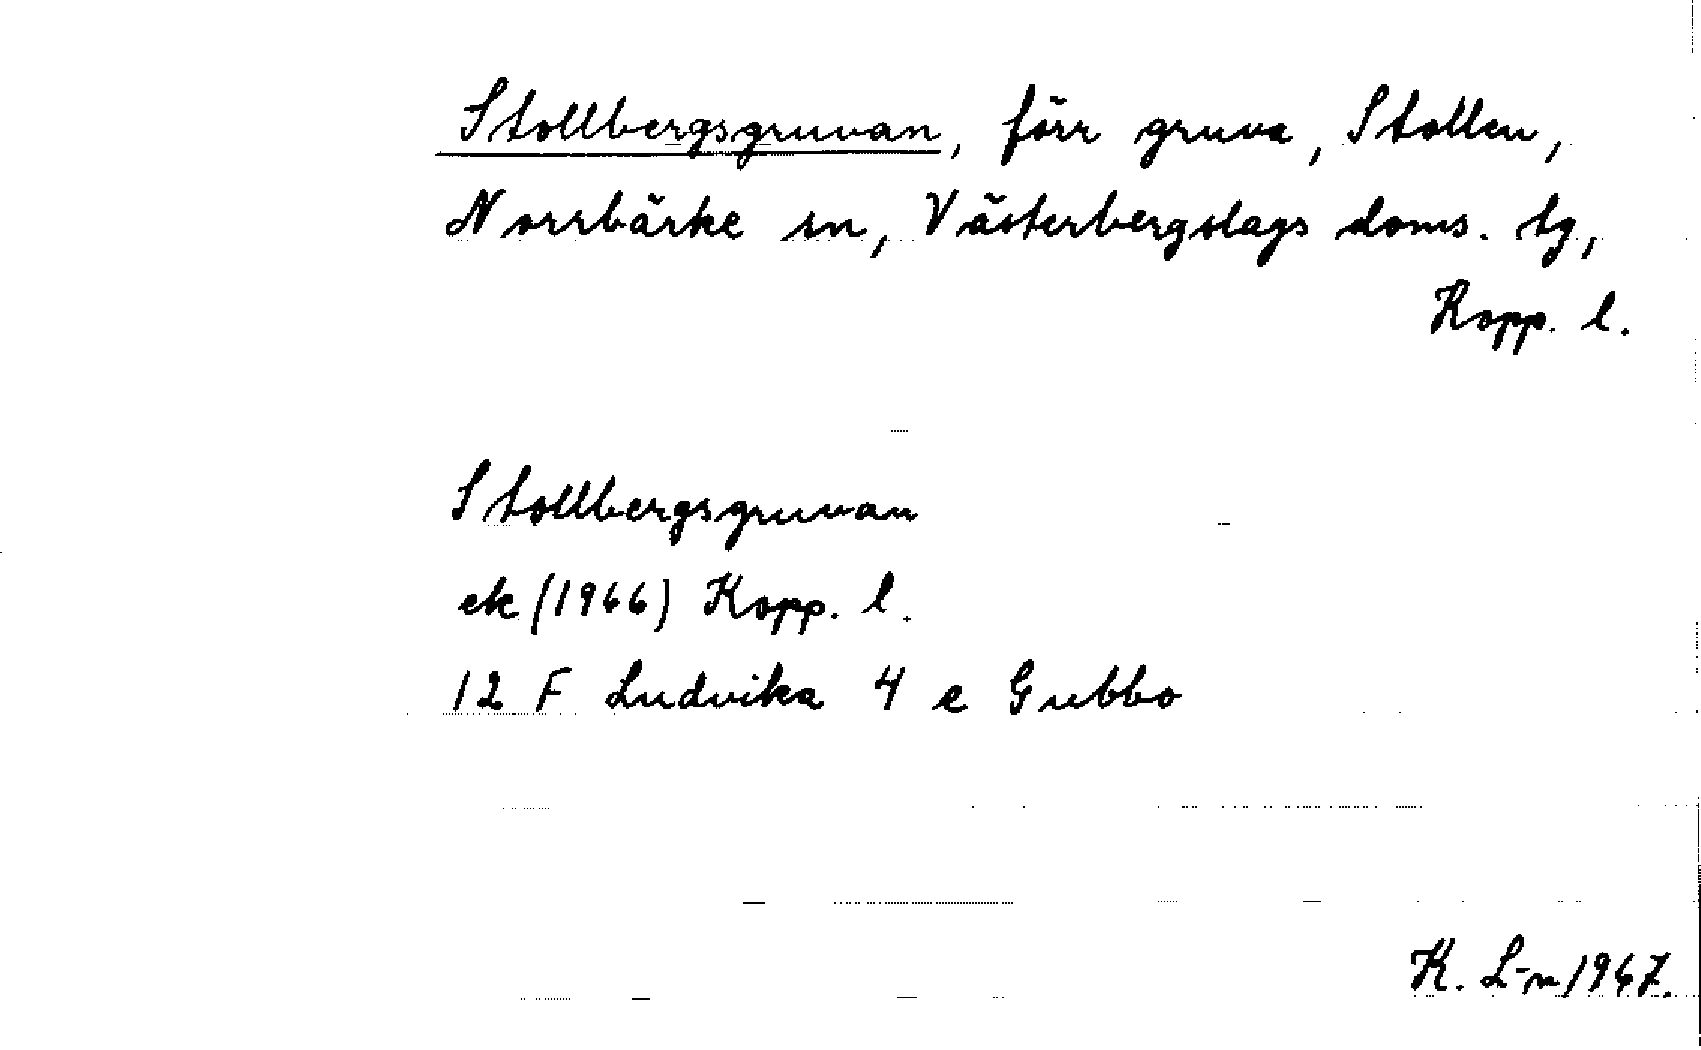 Stollbergsgruvan, förr gruva, Stollen,
Norrbärke sn, Västerbergslags doms. tg,
Kopp. l.
Stollbergsgruvan
ek (1966) Kopp. l.
12 F Ludvika 4 e Gubbo
K. L-n 1967.